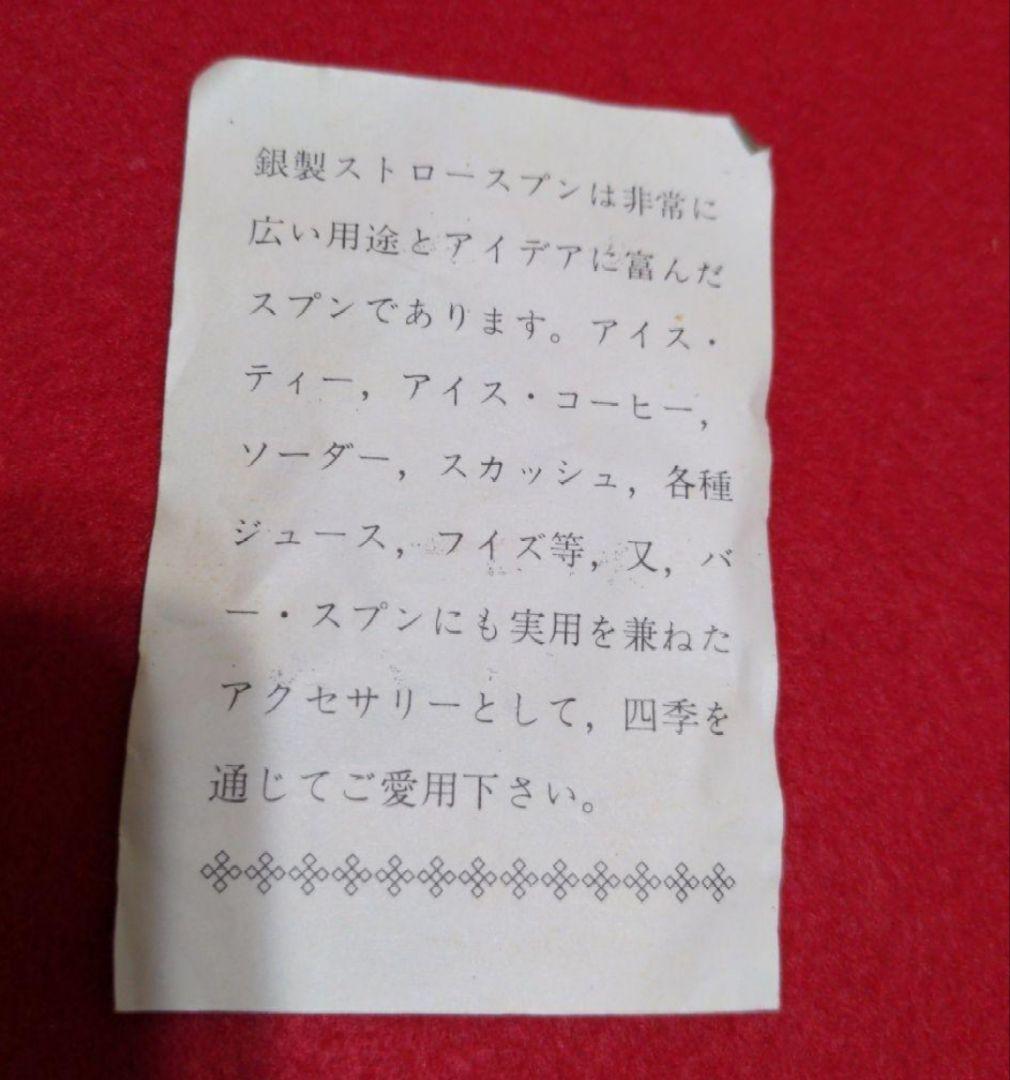 銀製ストロースプンは非常に
広い用途とアイデアに富んだ
スプンであります。アイス・
ティー，アイス・コーヒー，
ソーダー，スカッシュ，各種
ジュース，フイズ等，又，バ
ー・スプンにも実用を兼ねた
アクセサリーとして，四季を
通じてご愛用下さい。